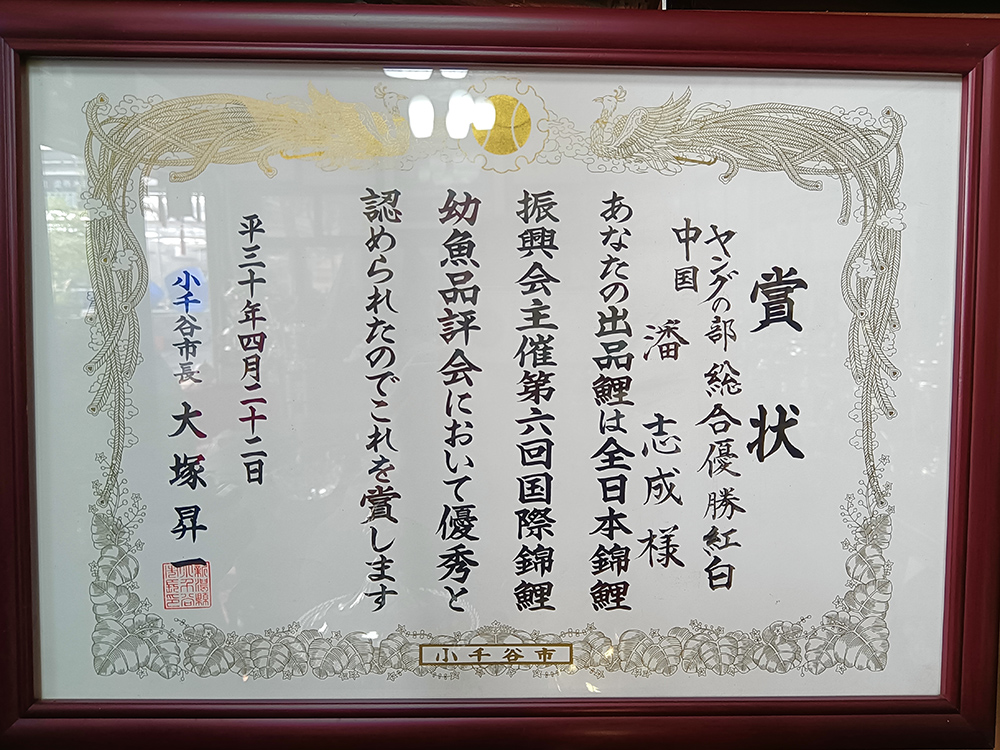 賞状
ヤングの部 総合優勝 紅白
中国
潘 志成 様
あなたの出品鯉は全日本錦鯉
振興会主催第六回国際錦鯉
幼魚品評会において優秀と
認められたのでこれを賞します
平三十年四月二十二日
小千谷市長 大塚昇一
小千谷市